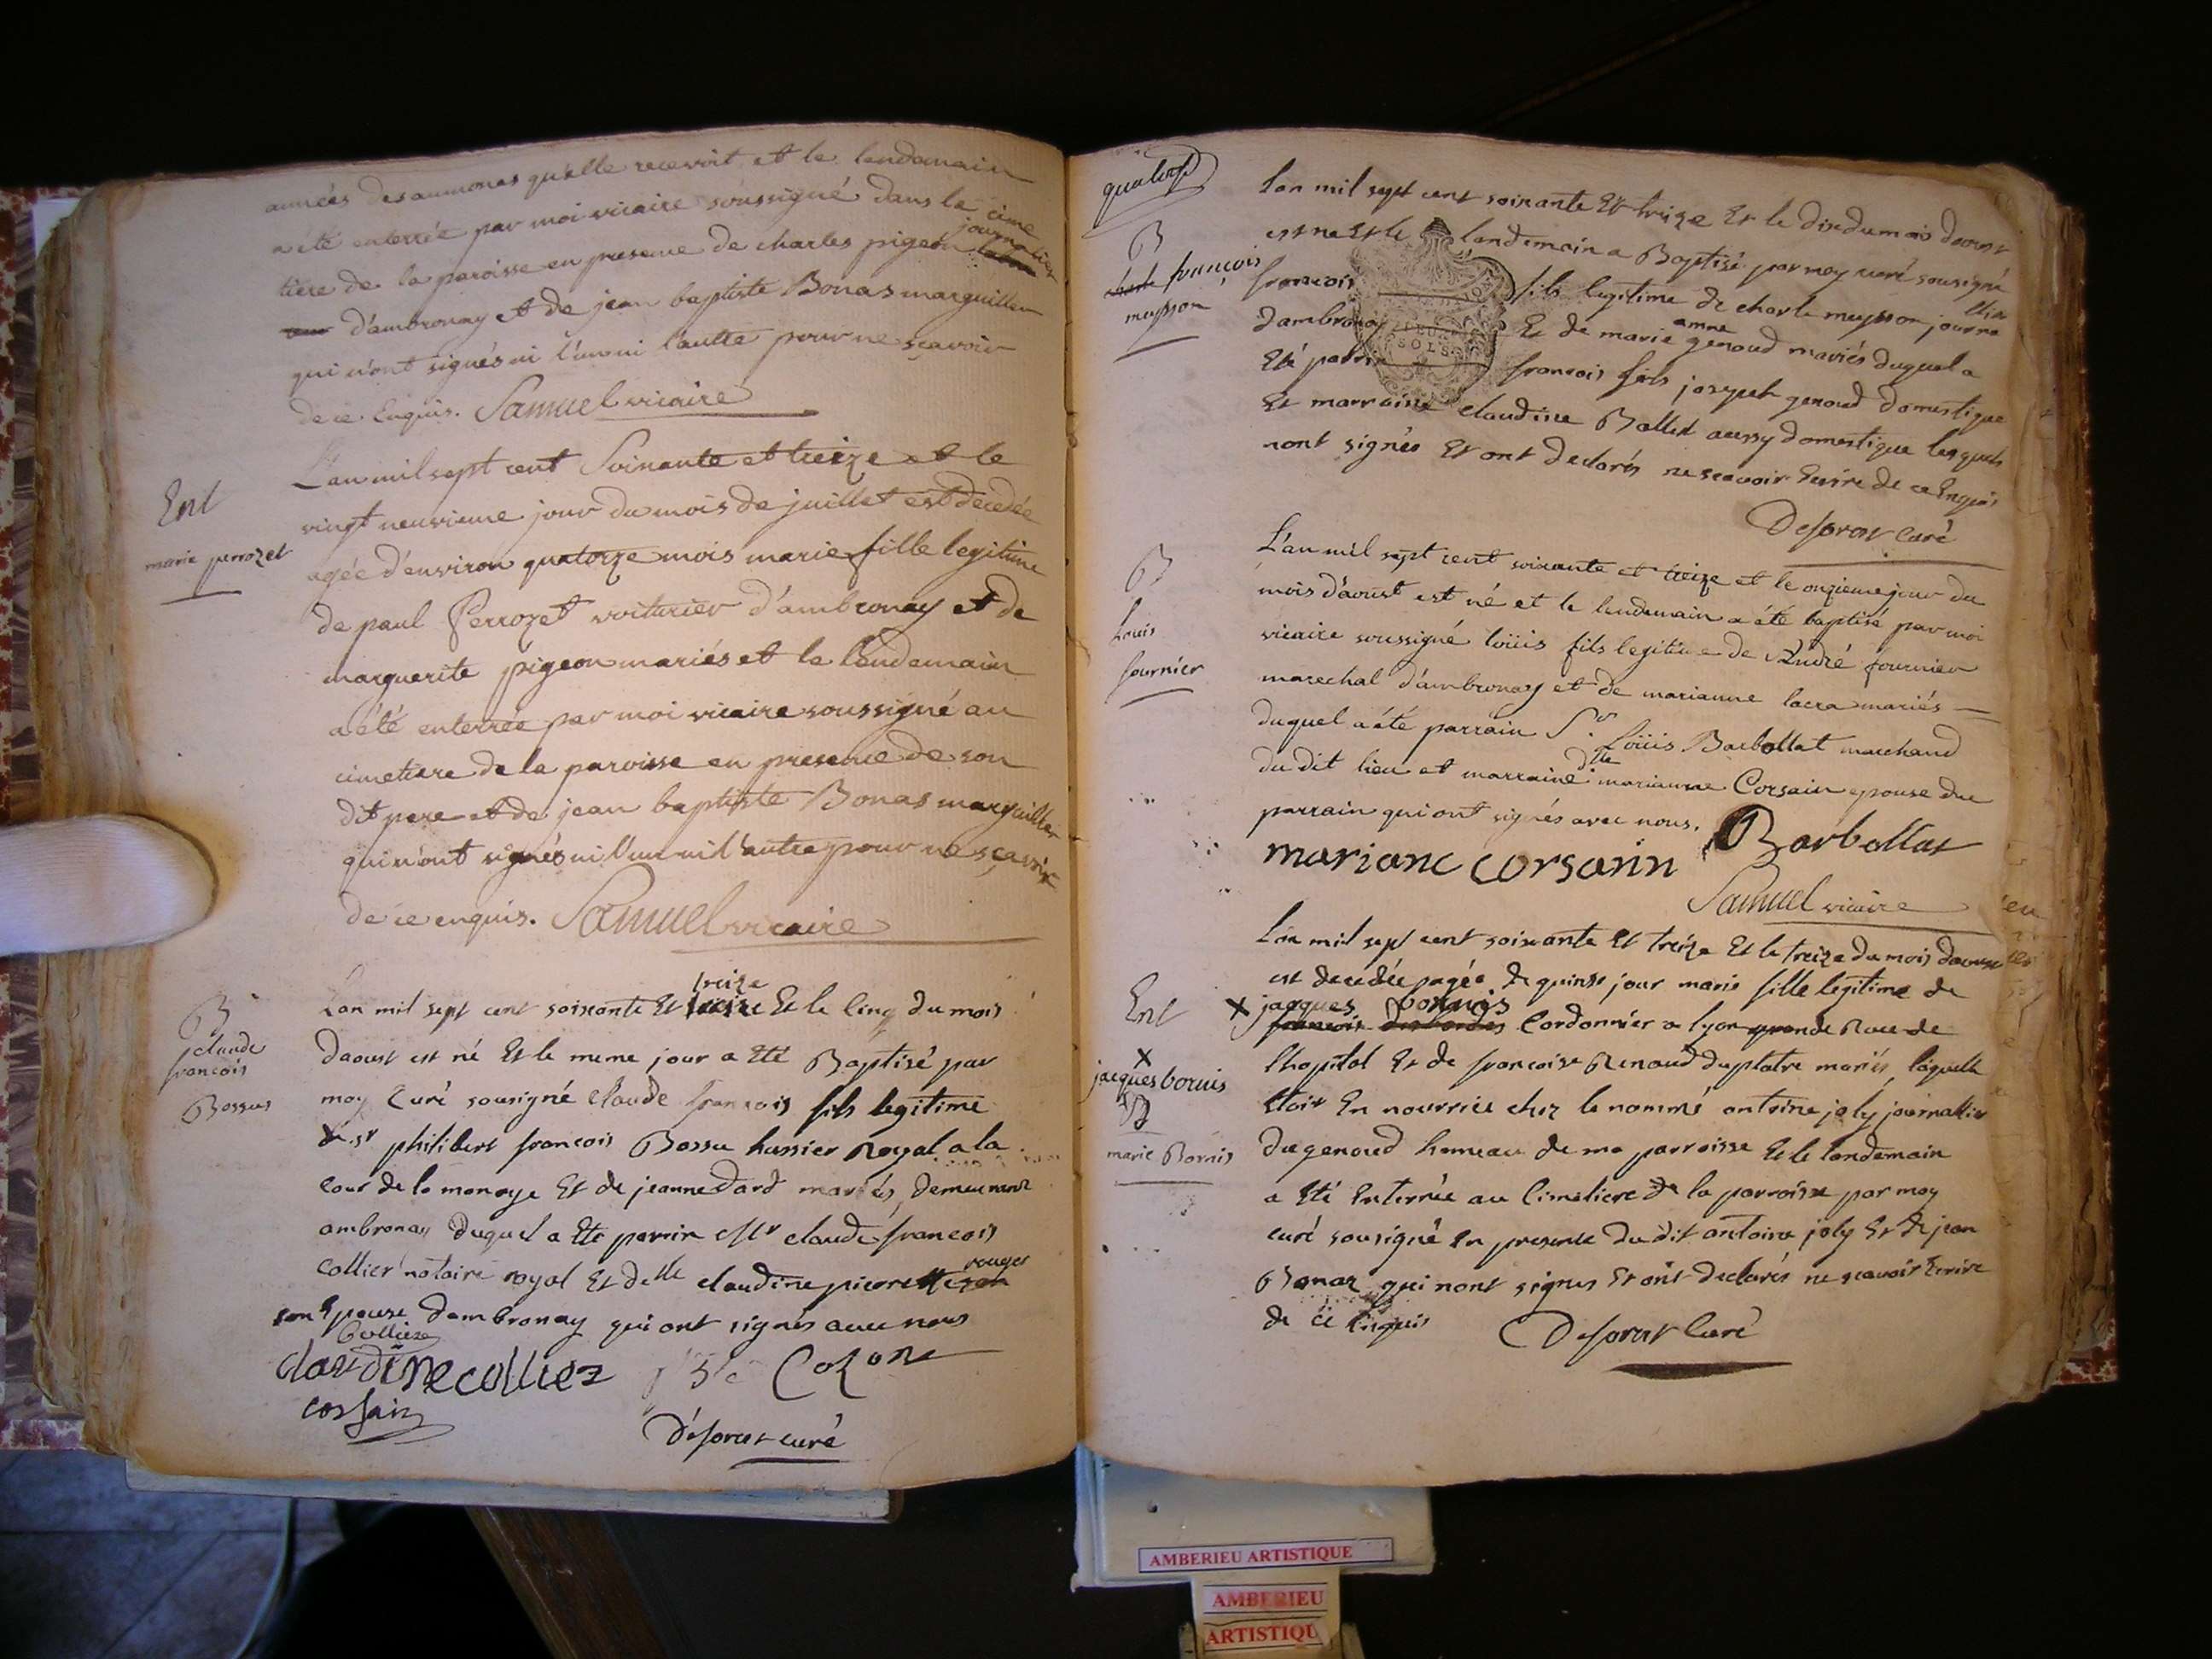 années des aumones qu'elle recevoit et le lendemain
a été enterrée par moi vicaire soussigné dans le cime
tiere de la paroisse en presence de charles pigeon journalier
d'ambronay et de jean baptiste Bonas marguillier
qui n'ont signés ni l'un ni l'autre pour ne sçavoir
de ce Enquis. Samuel vicaire
Ent
marie perrozet
L'an mil sept cent Soixante et treize et le
vingt neuvieme jour du mois de juillet est decedée
agée d'environ quatorze mois marie fille legitime
de paul Perrozet voiturier d'ambronay et de
marguerite pigeon mariés et le lendemain
a été enterrée par moi vicaire soussigné au
cimetiere de la paroisse en presence de son
dit pere et de jean baptiste Bonas marguillier
qui n'ont signés ni l'un ni l'autre pour ne sçavoir
de ce enquis. Samuel vicaire
B
claude
francois
Bossus
Lan mil sept cent soixante Et treize Et le Cinq du mois
daoust est né Et le meme jour a Eté Baptisé par
moy Curé sousigné Claude francois fils legitime
de sr philibert francois Bossu hussier Royal a la
Cour de la monoye Et de jeanne dard mariés, demeurant
ambronay duquel a Eté parrin claude francois
Collier notaire royal Et delle claudine pierette rouger
son Epouse dambronay qui ont signés avec nous
Collier
claudine collier
cossain
desprat curé
quatorse
B
françois
meysson
Lan mil sept cent soixante Et treize Et le dix du mois daoust
est ne Et le lendemain a Baptisé par moy curé sousigné
francois fils legitime de charle meysson journallier
dambronay Et de marie anne genoud mariés duquel a
Eté parrin francois fils joseph genoud domestique
Et marraine claudine Ballet aussy domestique lesquels
nont signés Et ont declarés ne scavoir Ecrire de ce Enquis
Desprat Curé
B
Louis
fournier
L'an mil sept cent soixante et treize et le onzieme jour du
mois d'aoust est né et le lendemain a été baptisé par moi
vicaire soussigné loüis fils legitime de André fournier
marechal d'ambronay et de marianne lacra mariés
duquel a été parrain Sr. Loüis Barbollat marchand
du dit lieu et marraine dlle marianne Corsain epouse du
parrain qui ont signés avec nous. Barbollat
mariane corsarin
Samuel vicaire
Ent
X
jacques bornis
B
marie Bornis
Lan mil sept cent soixante Et treize Et le treize du mois daoust
est decedée agée de quinse jour marie fille legitime de
X jacques bornis Cordonnier a lyon grande Rue de
lhopital Et de francoise Renaud duplatre mariés, laquelle
Etoit En nourrice chez le nommé antoine joly journallier
du genoud hameau de ma parroisse Et le lendemain
a Eté Enterrée au Cimetiere de la parroisse par moy
curé sousigné En presence du dit antoine joly Et de jean
Bonaz qui nont signes Et ont declarés ne scavoir Ecrire
de ce Enquis Desprat Curé
AMBERIEU ARTISTIQUE
AMBERIEU
ARTISTIQU